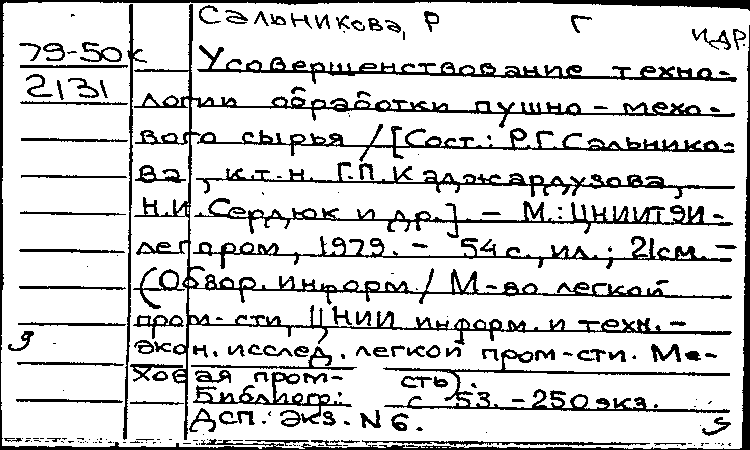 Сальникова, Р Г и др.
79-50к Усовершенствование техно-
2131 логии обработки пушно-мехо-
вого сырья / [Сост.: Р.Г. Сальнико-
ва, к.т.н. Г.П. Каджардузова,
Н.И. Сердюк и др.]. - М.: ЦНИИТЭИ-
легпром, 1979. - 54 с., ил.; 21 см. -
(Обзор. информ. / М-во легкой
пром-сти, ЦНИИ информ. и техн.-
экон. исслед. легкой пром-сти. Ме-
ховая пром-сть).
Библиогр.: с 53. - 250 экз.
Дсп. Экз. N 6.